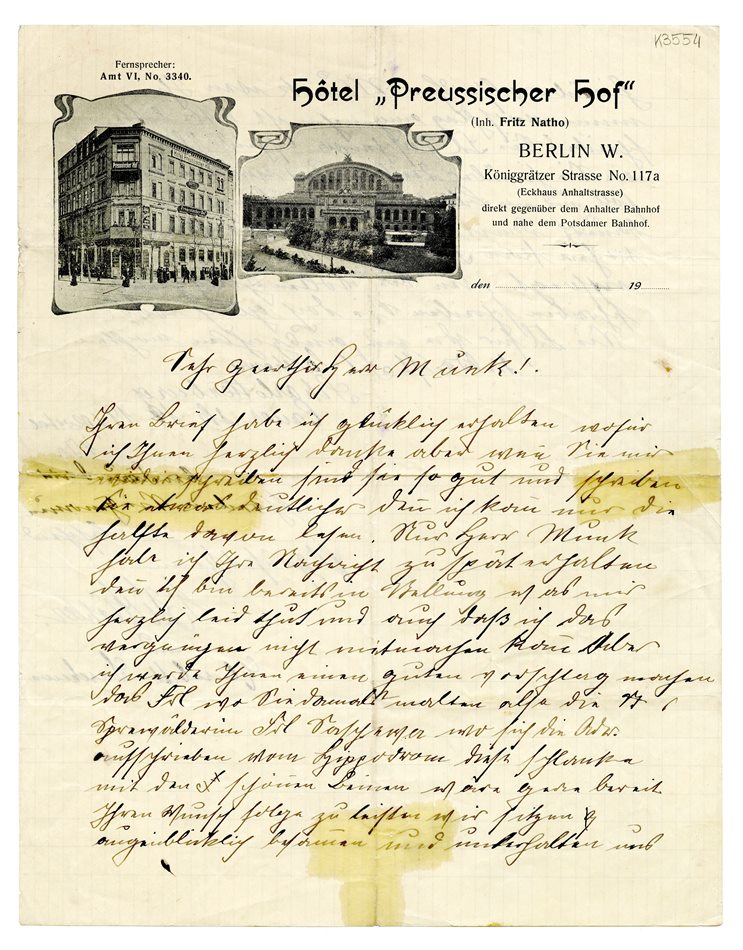 K3554
Fernsprecher:
Amt VI, No. 3340.
Hôtel „Preussischer Hof“
(Inh. Fritz Natho)
BERLIN W.
Königgrätzer Strasse No. 117a
(Eckhaus Anhaltstrasse)
direkt gegenüber dem Anhalter Bahnhof
und nahe dem Potsdamer Bahnhof.
den 19
Sehr geerther Herr Munk!.
Ihren Brief habe ich glücklich erhalten wofür
ich Ihnen herzlich danke aber wen Sie mir
wieder schreiben sind sie so gut und schreiben
Sie etwas deutlicher den ich kan nur die
hälfte davon lesen. Nur Herr Munk
habe ich Ihre Nachricht zu spät erhalten
den ich bin bereits in Stellung was mir
herzlich leid thut und auch daß ich das
vergnügen nicht mitmachen kan Aber
ich werde Ihnen einen guten vorschlag machen
das Frl wo Sie damals malten also die
Spreewälderin Frl wo sich die Adr.
aufschrieben vom Hippodrom diese schlanke
mit den schönen Beinen wäre gerne bereit
Ihren Wunsch folge zu leisten wir sitzen
augenblicklich besamen und unterhalten uns